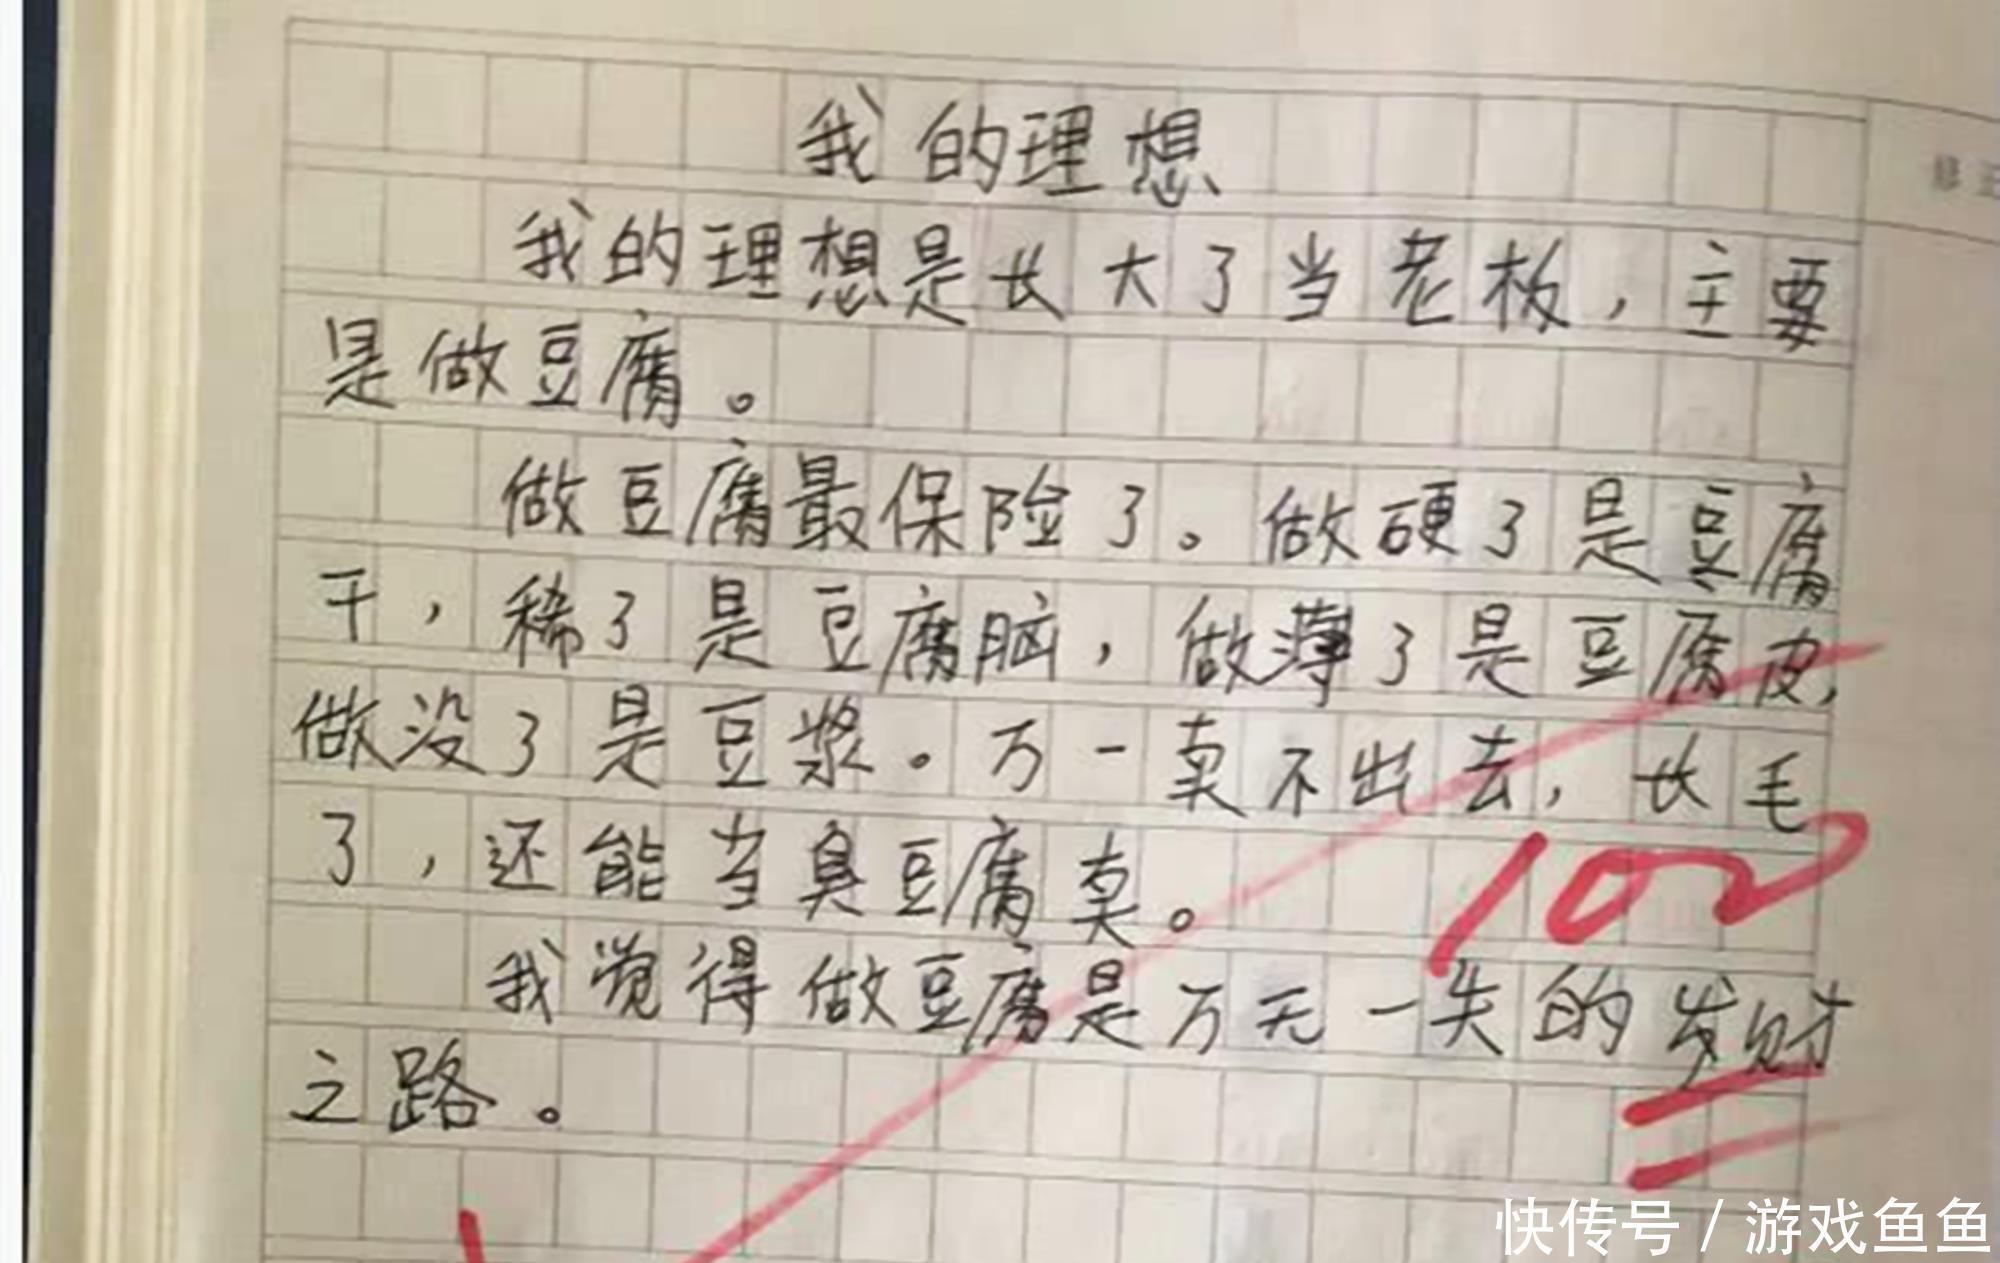 我的理想
我的理想是长大了当老板，主要
是做豆腐。
做豆腐最保险了。做硬了是豆腐
干，稀了是豆腐脑，做薄了是豆腐皮，
做没了是豆浆。万一卖不出去，长毛
了，还能当臭豆腐卖。
100
我觉得做豆腐是万无一失的发财
之路。
修正
快传号/游戏鱼鱼